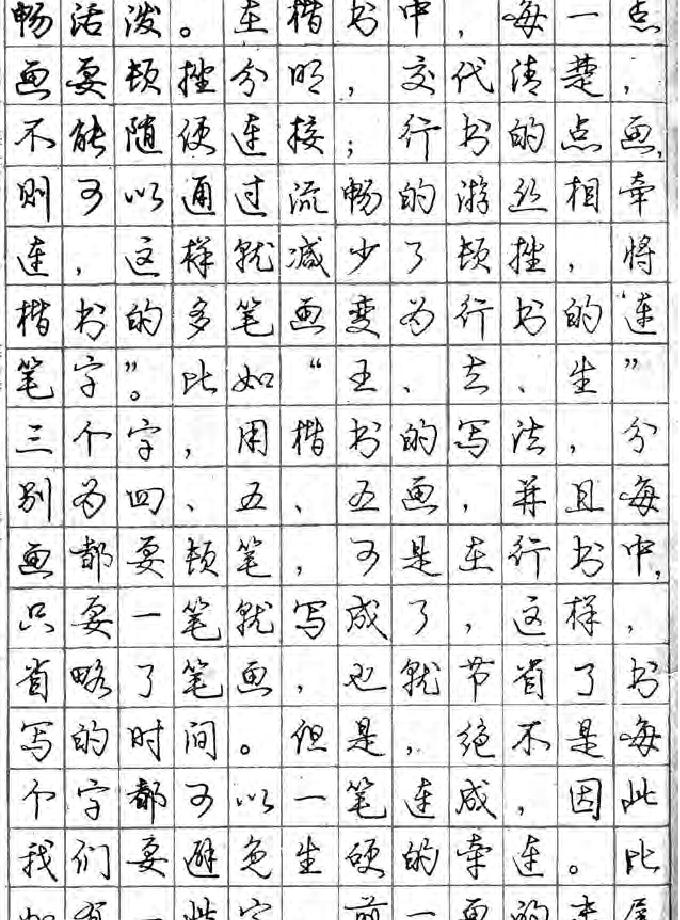 畅活泼。在楷书中，每一点
画要顿挫分明，交代清楚，
不能随便连接；行书的点画，
则可以通过流畅的游丝相牵
连，这样就减少了顿挫，将
楷书的多笔画变为行书的“连
笔字”。比如“王、去、生”
三个字，用楷书的写法，分
别为四、五、五画，并且每
画都要顿笔，可是在行书中，
只要一笔就写成了，这样，
省略了笔画，也就节省了书
写的时间。但是，绝不是每
个字都可以一笔连成，因此
我们要避免生硬的牵连。比
如有一些字，前一画的末尾